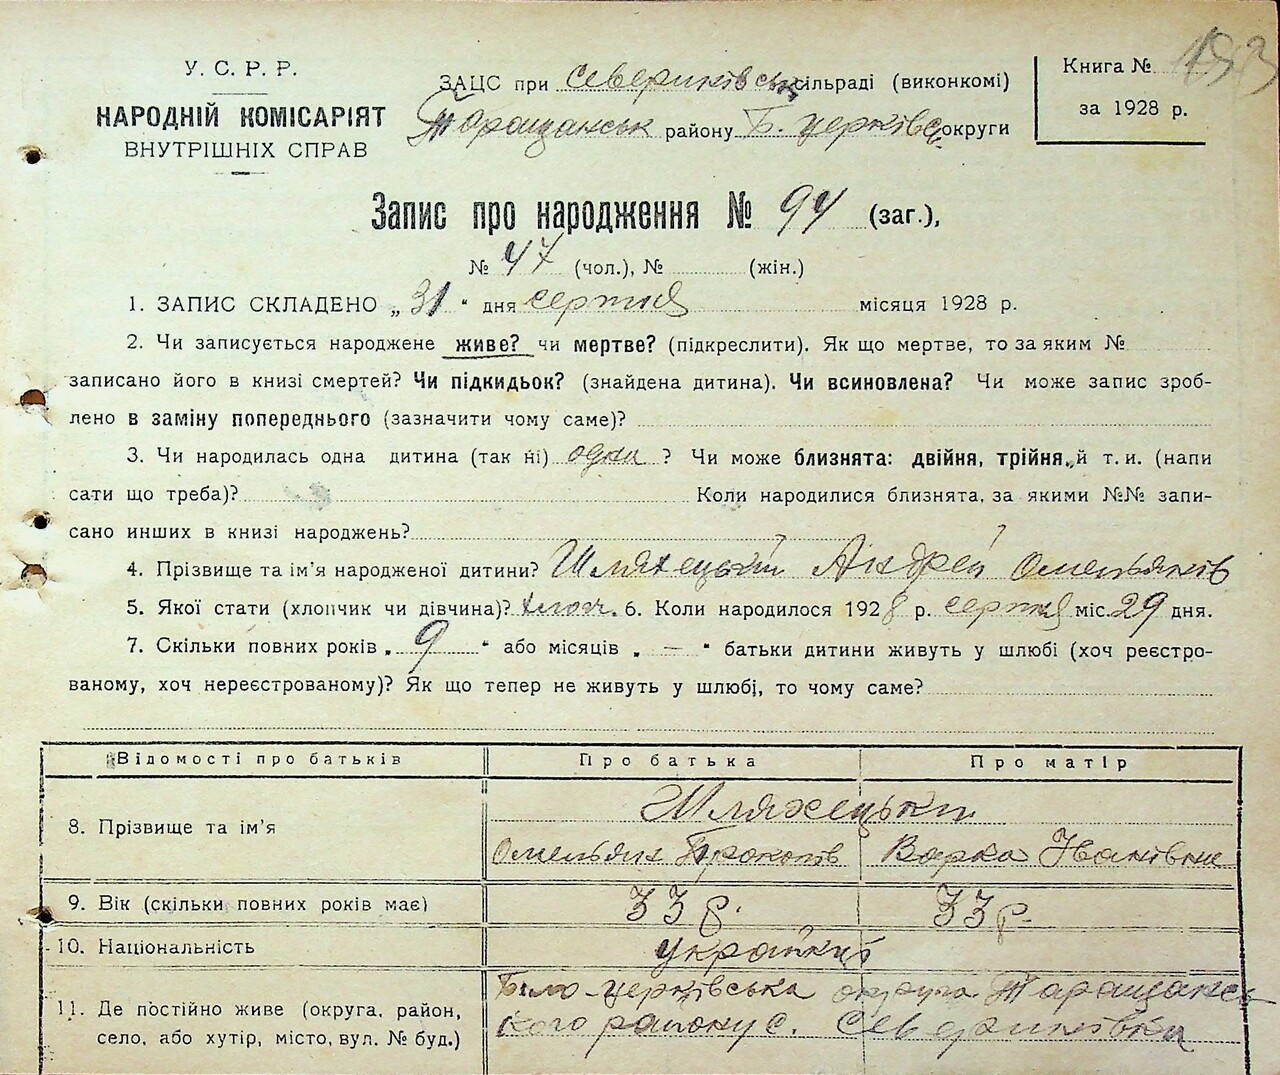 193
У. С. Р. Р.
НАРОДНІЙ КОМІСАРІЯТ
ВНУТРІШНІХ СПРАВ
ЗАЦС при Севериківськ сільраді (виконкомі)
Таращанськ району Б. церківсь округи
Книга №
за 1928 р.
Запис про народження № 94 (заг.),
№ 47 (чол.), № (жін.)
1. ЗАПИС СКЛАДЕНО „31“ дня серпня місяця 1928 р.
2. Чи записується народжене живе? чи мертве? (підкреслити). Як що мертве, то за яким №
записано його в книзі смертей? Чи підкидьок? (знайдена дитина). Чи всиновлена? Чи може запис зроб-
лено в заміну попереднього (зазначити чому саме)?
3. Чи народилась одна дитина (так ні) одна ? Чи може близнята: двійня, трійня, й т. и. (напи
сати що треба)? Коли народилися близнята, за якими №№ запи-
сано инших в книзі народжень?
4. Прізвище та ім'я народженої дитини? Шляхецький Андрей Омельянів
5. Якої стати (хлопчик чи дівчина)? хлопч. 6. Коли народилося 1928 р. серпня міс. 29 дня.
7. Скільки повних років „ 9 “ або місяців „ — “ батьки дитини живуть у шлюбі (хоч реєстро-
ваному, хоч нереєстрованому)? Як що тепер не живуть у шлюбі, то чому саме?
Відомості про батьків Про батька Про матір
8. Прізвище та ім'я Шляхецьки
Омельян Прокопів Варка Іванівна
9. Вік (скільки повних років має) 33 р. 33 р.
10. Національність українці
11. Де постійно живе (округа, район,
село, або хутір, місто, вул. № буд.)
Біло-церківська округа Таращансь
кого району с. Севериківка